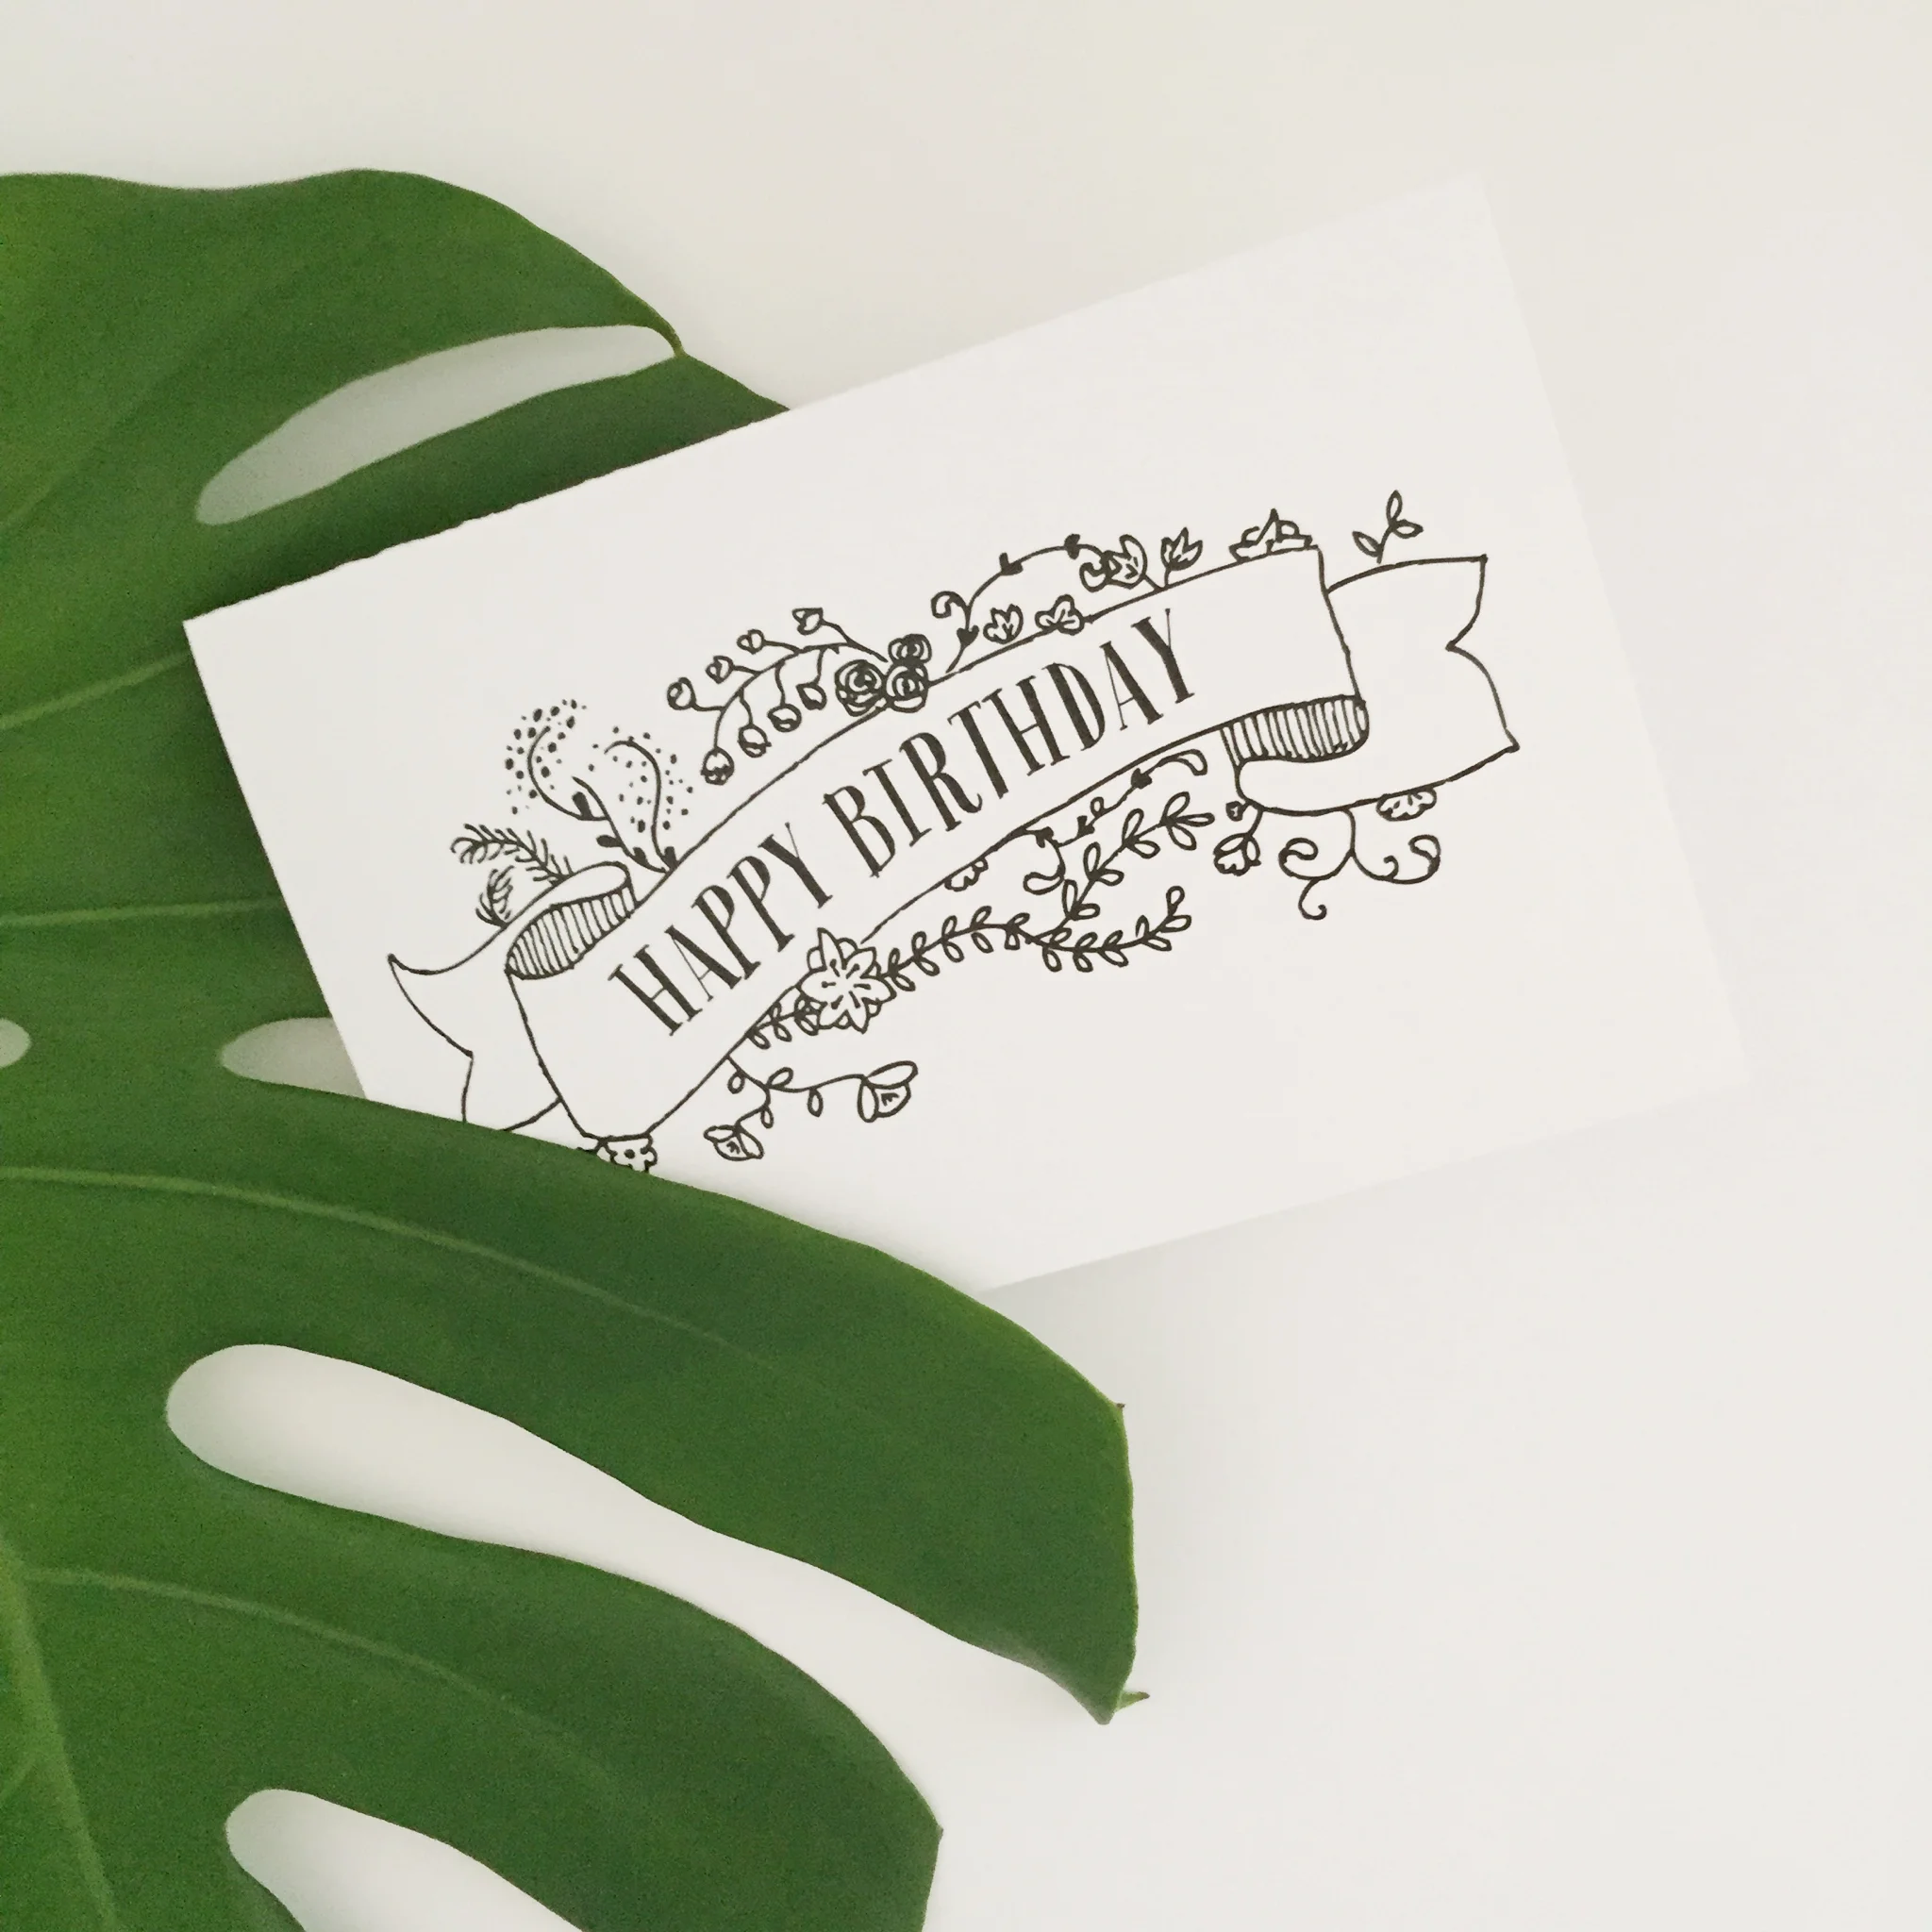 HAPPY BIRTHDAY